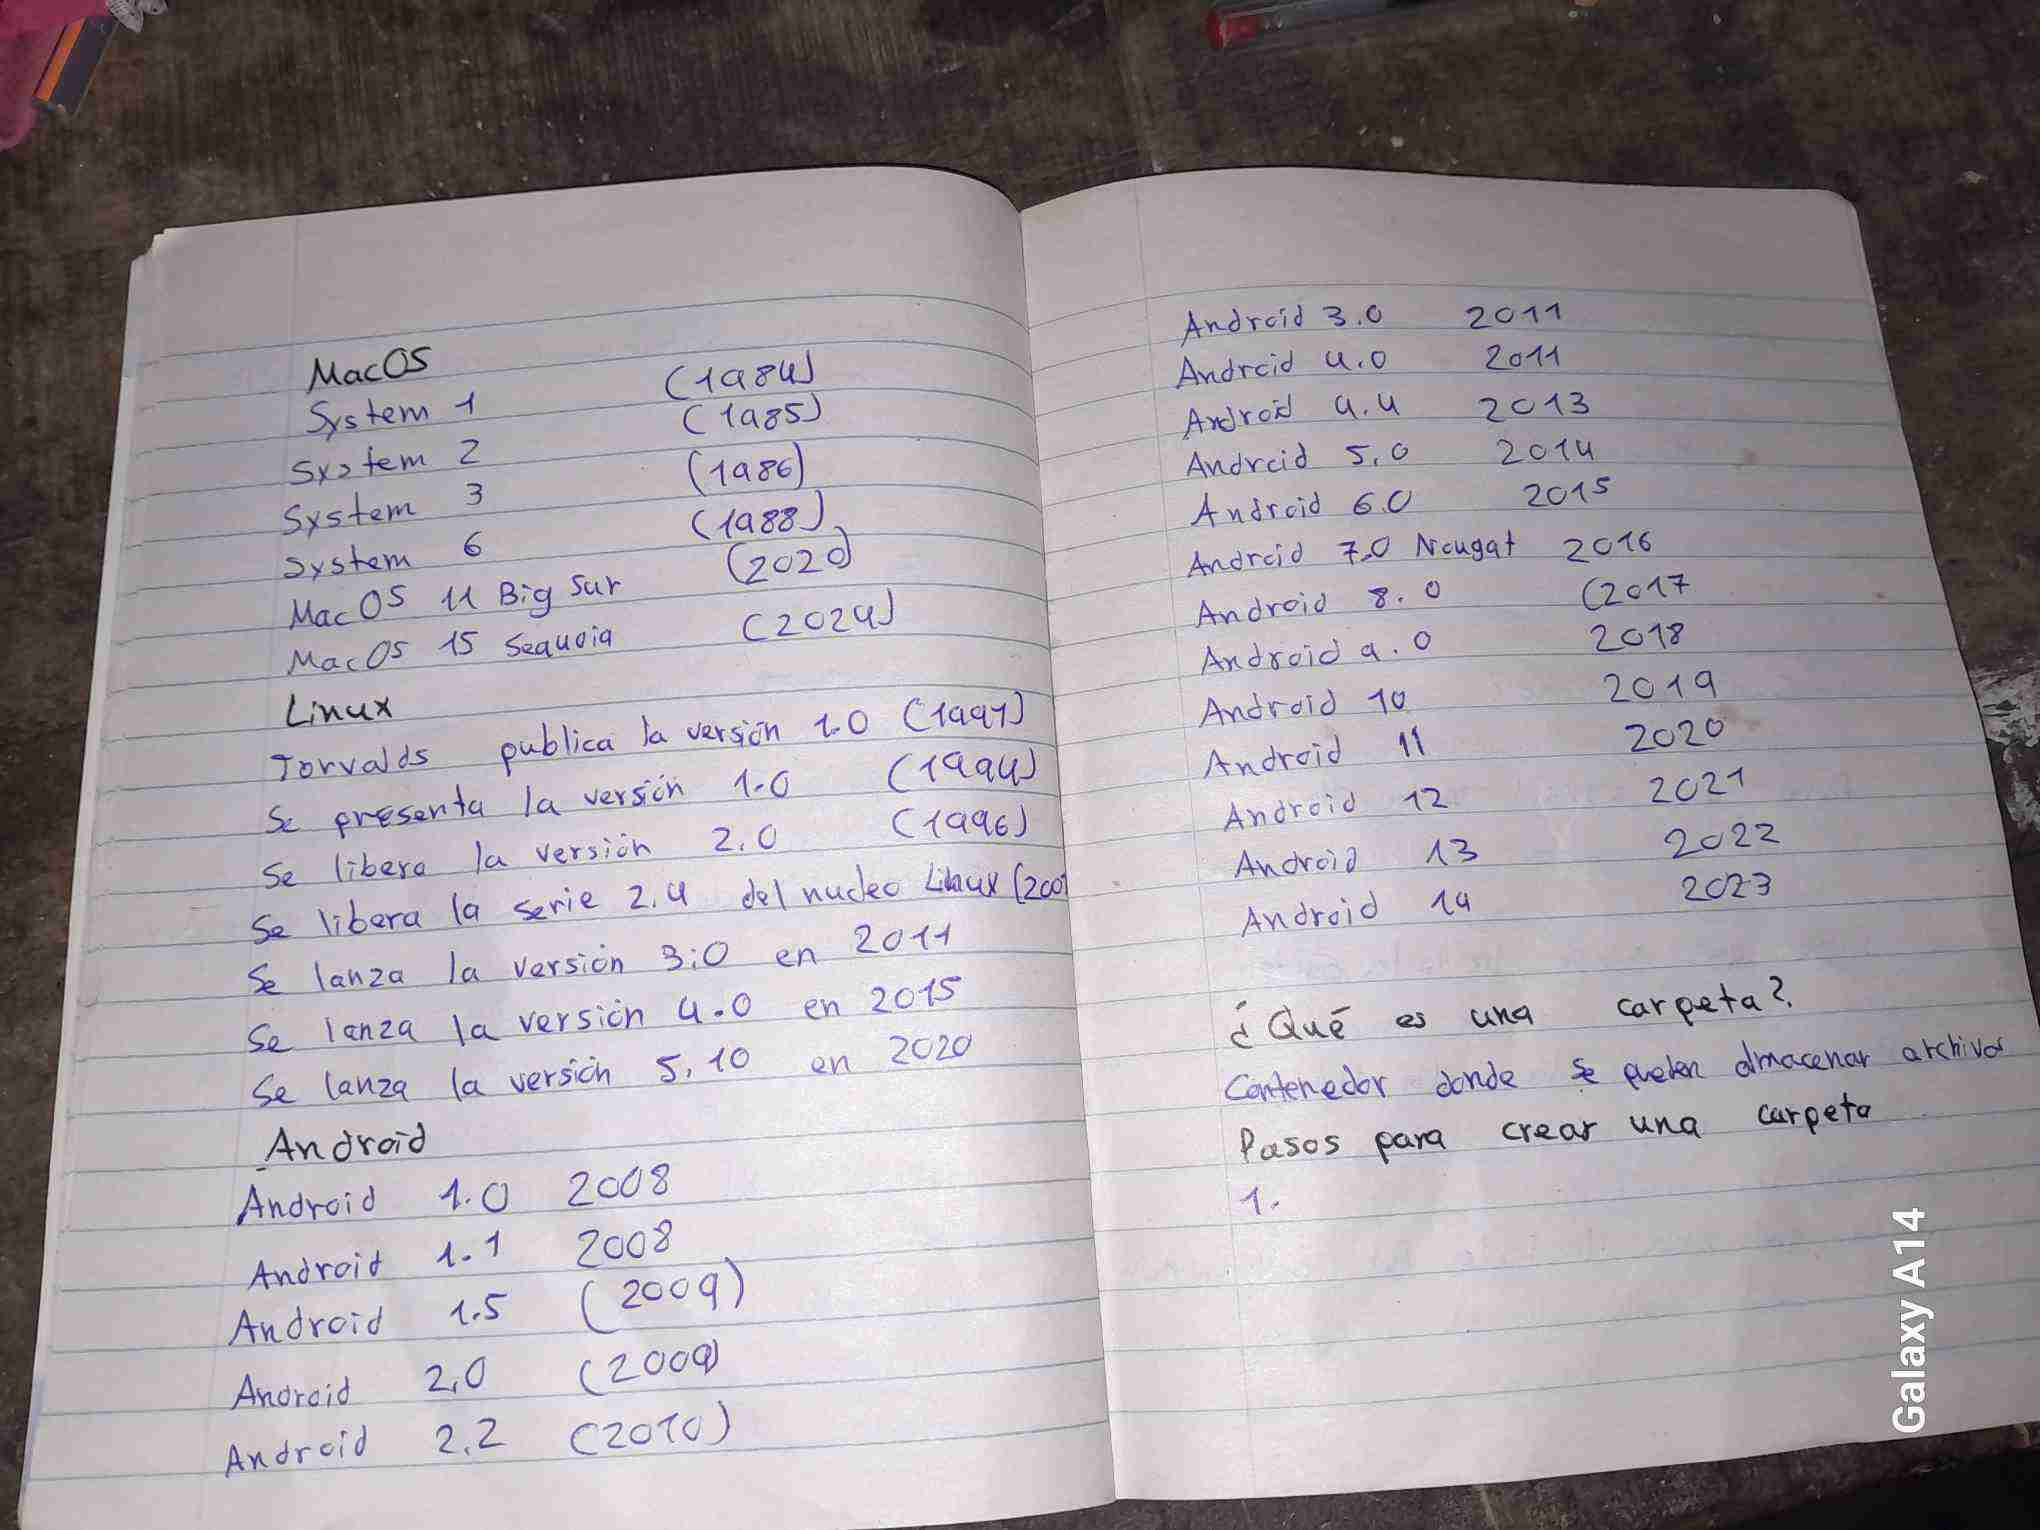 MacOS
System 1 (1984)
System 2 (1985)
System 3 (1986)
System 6 (1988)
MacOS 11 Big Sur (2020)
MacOS 15 Sequoia (2024)
Linux
Torvalds publica la versión 1.0 (1991)
Se presenta la versión 1.0 (1994)
Se libera la versión 2.0 (1996)
Se libera la serie 2.4 del nucleo Linux (200
Se lanza la versión 3.0 en 2011
Se lanza la versión 4.0 en 2015
Se lanza la versión 5.10 en 2020
Android
Android 1.0 2008
Android 1.1 2008
Android 1.5 (2009)
Android 2.0 (2009)
Android 2.2 (2010)
Android 3.0 2011
Android 4.0 2011
Android 4.4 2013
Android 5.0 2014
Android 6.0 2015
Android 7.0 Nougat 2016
Android 8.0 (2017
Android 9.0 2018
Android 10 2019
Android 11 2020
Android 12 2021
Android 13 2022
Android 14 2023
¿Qué es una carpeta?
Contenedor donde se pueden almacenar archivos
Pasos para crear una carpeta
1.
Galaxy A14